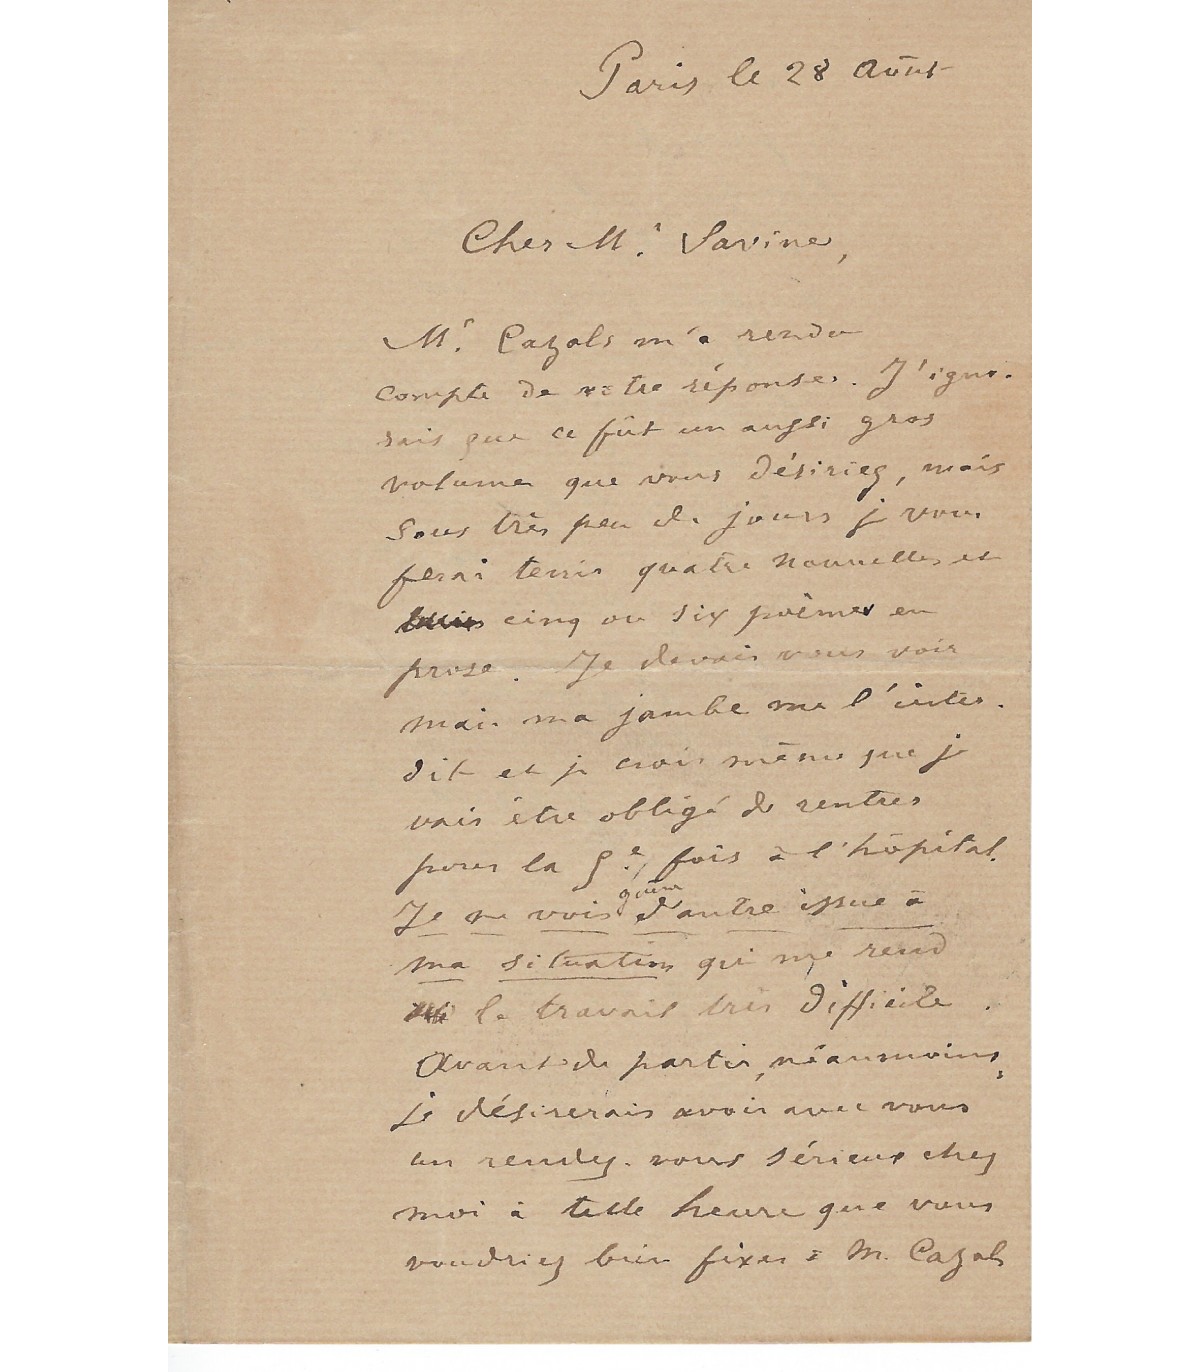 Paris le 28 Août
Cher Mr. Savine,
Mr. Cazals m'a rendu
compte de votre réponse. J'igno-
rais que ce fût un aussi gros
volume que vous désiriez, mais
sous très peu de jours je vous
ferai tenir quatre nouvelles et
cinq ou six poèmes en
prose. Je devais vous voir
mais ma jambe me l'inter-
dit et je crois même que je
vais être obligé de rentrer
pour la 5e fois à l'hôpital.
Je ne vois guère d'autre issue à
ma situation qui me rend
le travail très difficile.
Avant de partir, néanmoins,
je désirerais avoir avec vous
un rendez-vous sérieux chez
moi à telle heure que vous
voudriez bien fixer à M. Cazals